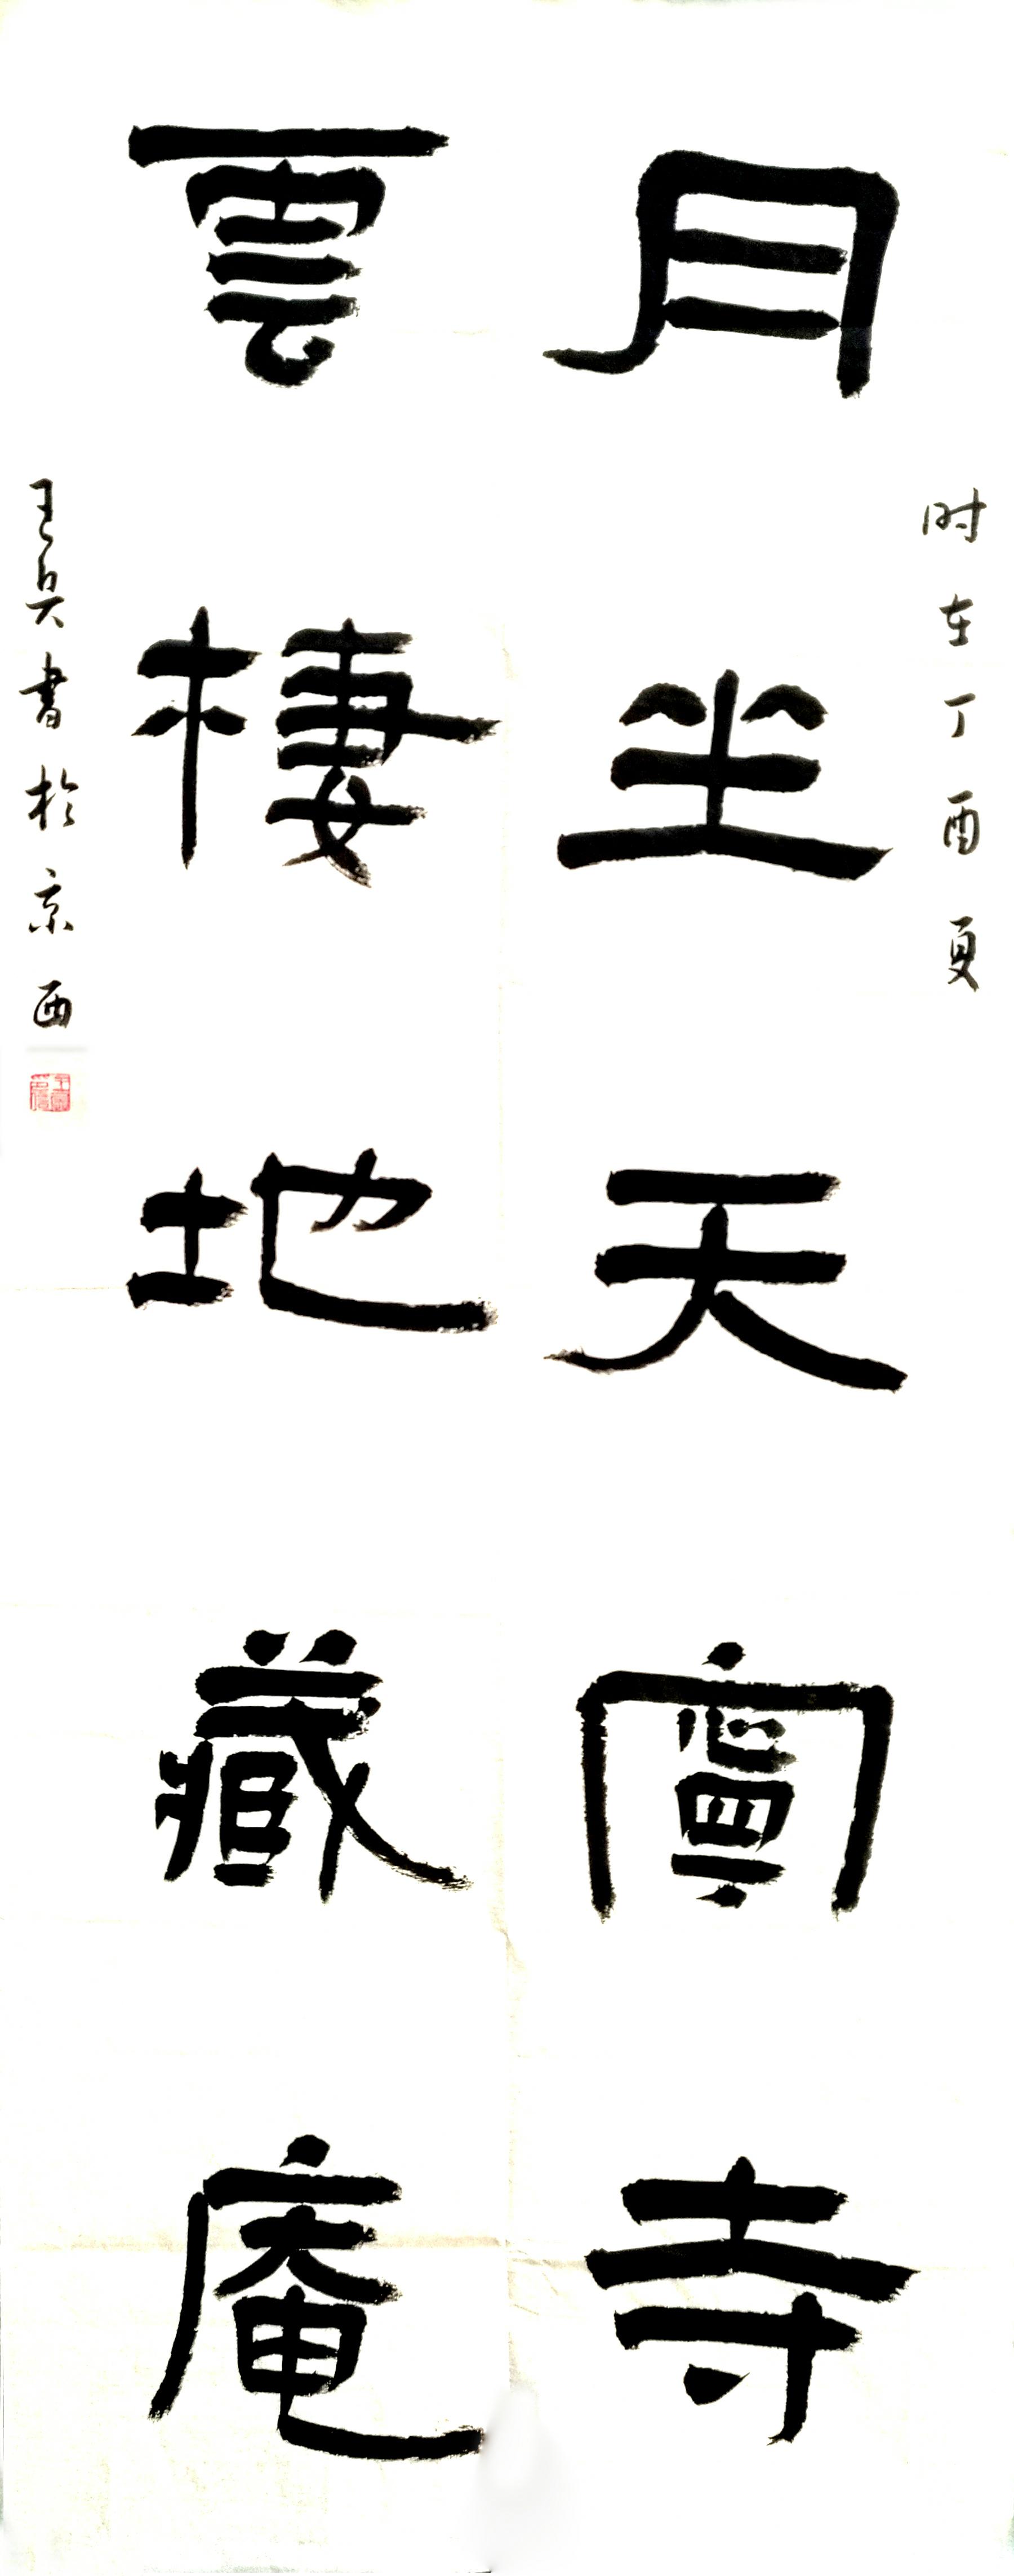 时在丁酉夏
月坐天寧寺
雲棲地藏庵
王昊書於京西